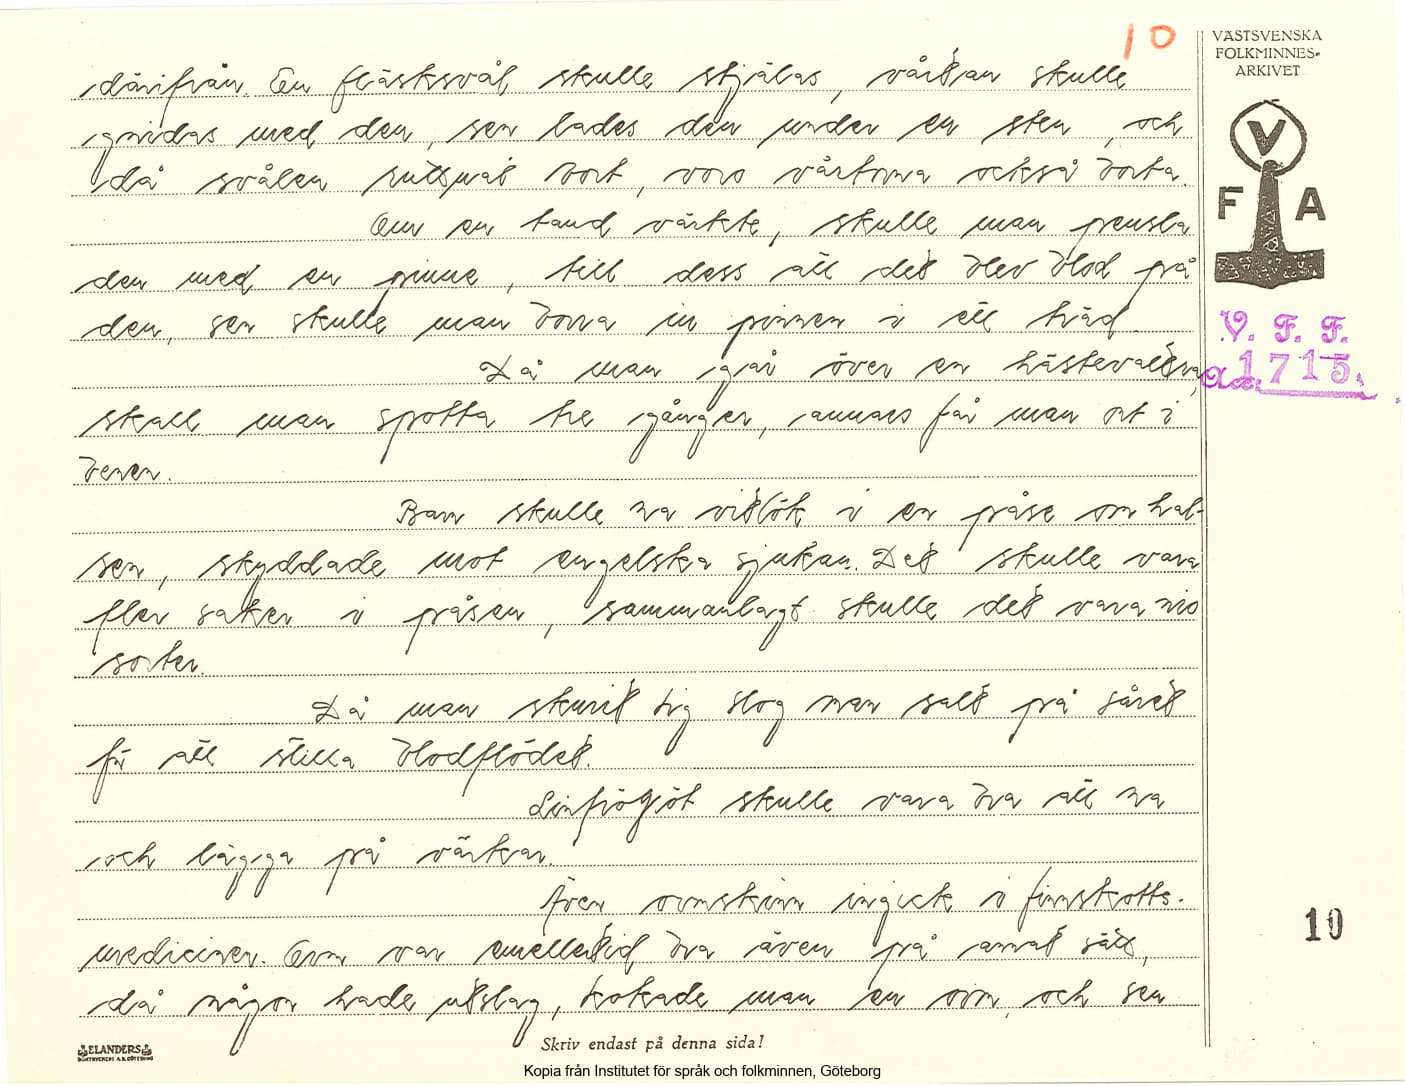 10
VÄSTSVENSKA
FOLKMINNES-
ARKIVET
V
F A
V. F. F.
Acc. 1715.
därifrån. En fläsksvål skulle stjälas, vårtan skulle
gnidas med den, sen lades den under en sten, och
då svålen ruttnat bort, voro vårtorna också borta.
Om en tand värkte, skulle man pensla
den med en pinne, till dess att det blev blod på
den, sen skulle man borra in pinnen i ett träd.
Då man går över en hästevaltra,
skall man spotta tre gånger, annars får man ont i
benen.
Barn skulle ha vitlök i en påse om hal-
sen, skyddade mot engelska sjukan. Det skulle vara
fler saker i påsen, sammanlagt skulle det vara nio
sorter.
Då man skurit sig slog man salt på såret
för att stilla blodflödet.
Linfrögröt skulle vara bra att ha
och lägga på värkar.
Även ormskinn ingick i finnskotts-
medicinen. Orm var emellertid bra även på annat sätt,
då någon hade utslag, kokade man en orm, och sen
10
ELANDERS
BOKTRYCKERI A.B. GÖTEBORG
Skriv endast på denna sida!
Kopia från Institutet för språk och folkminnen, Göteborg